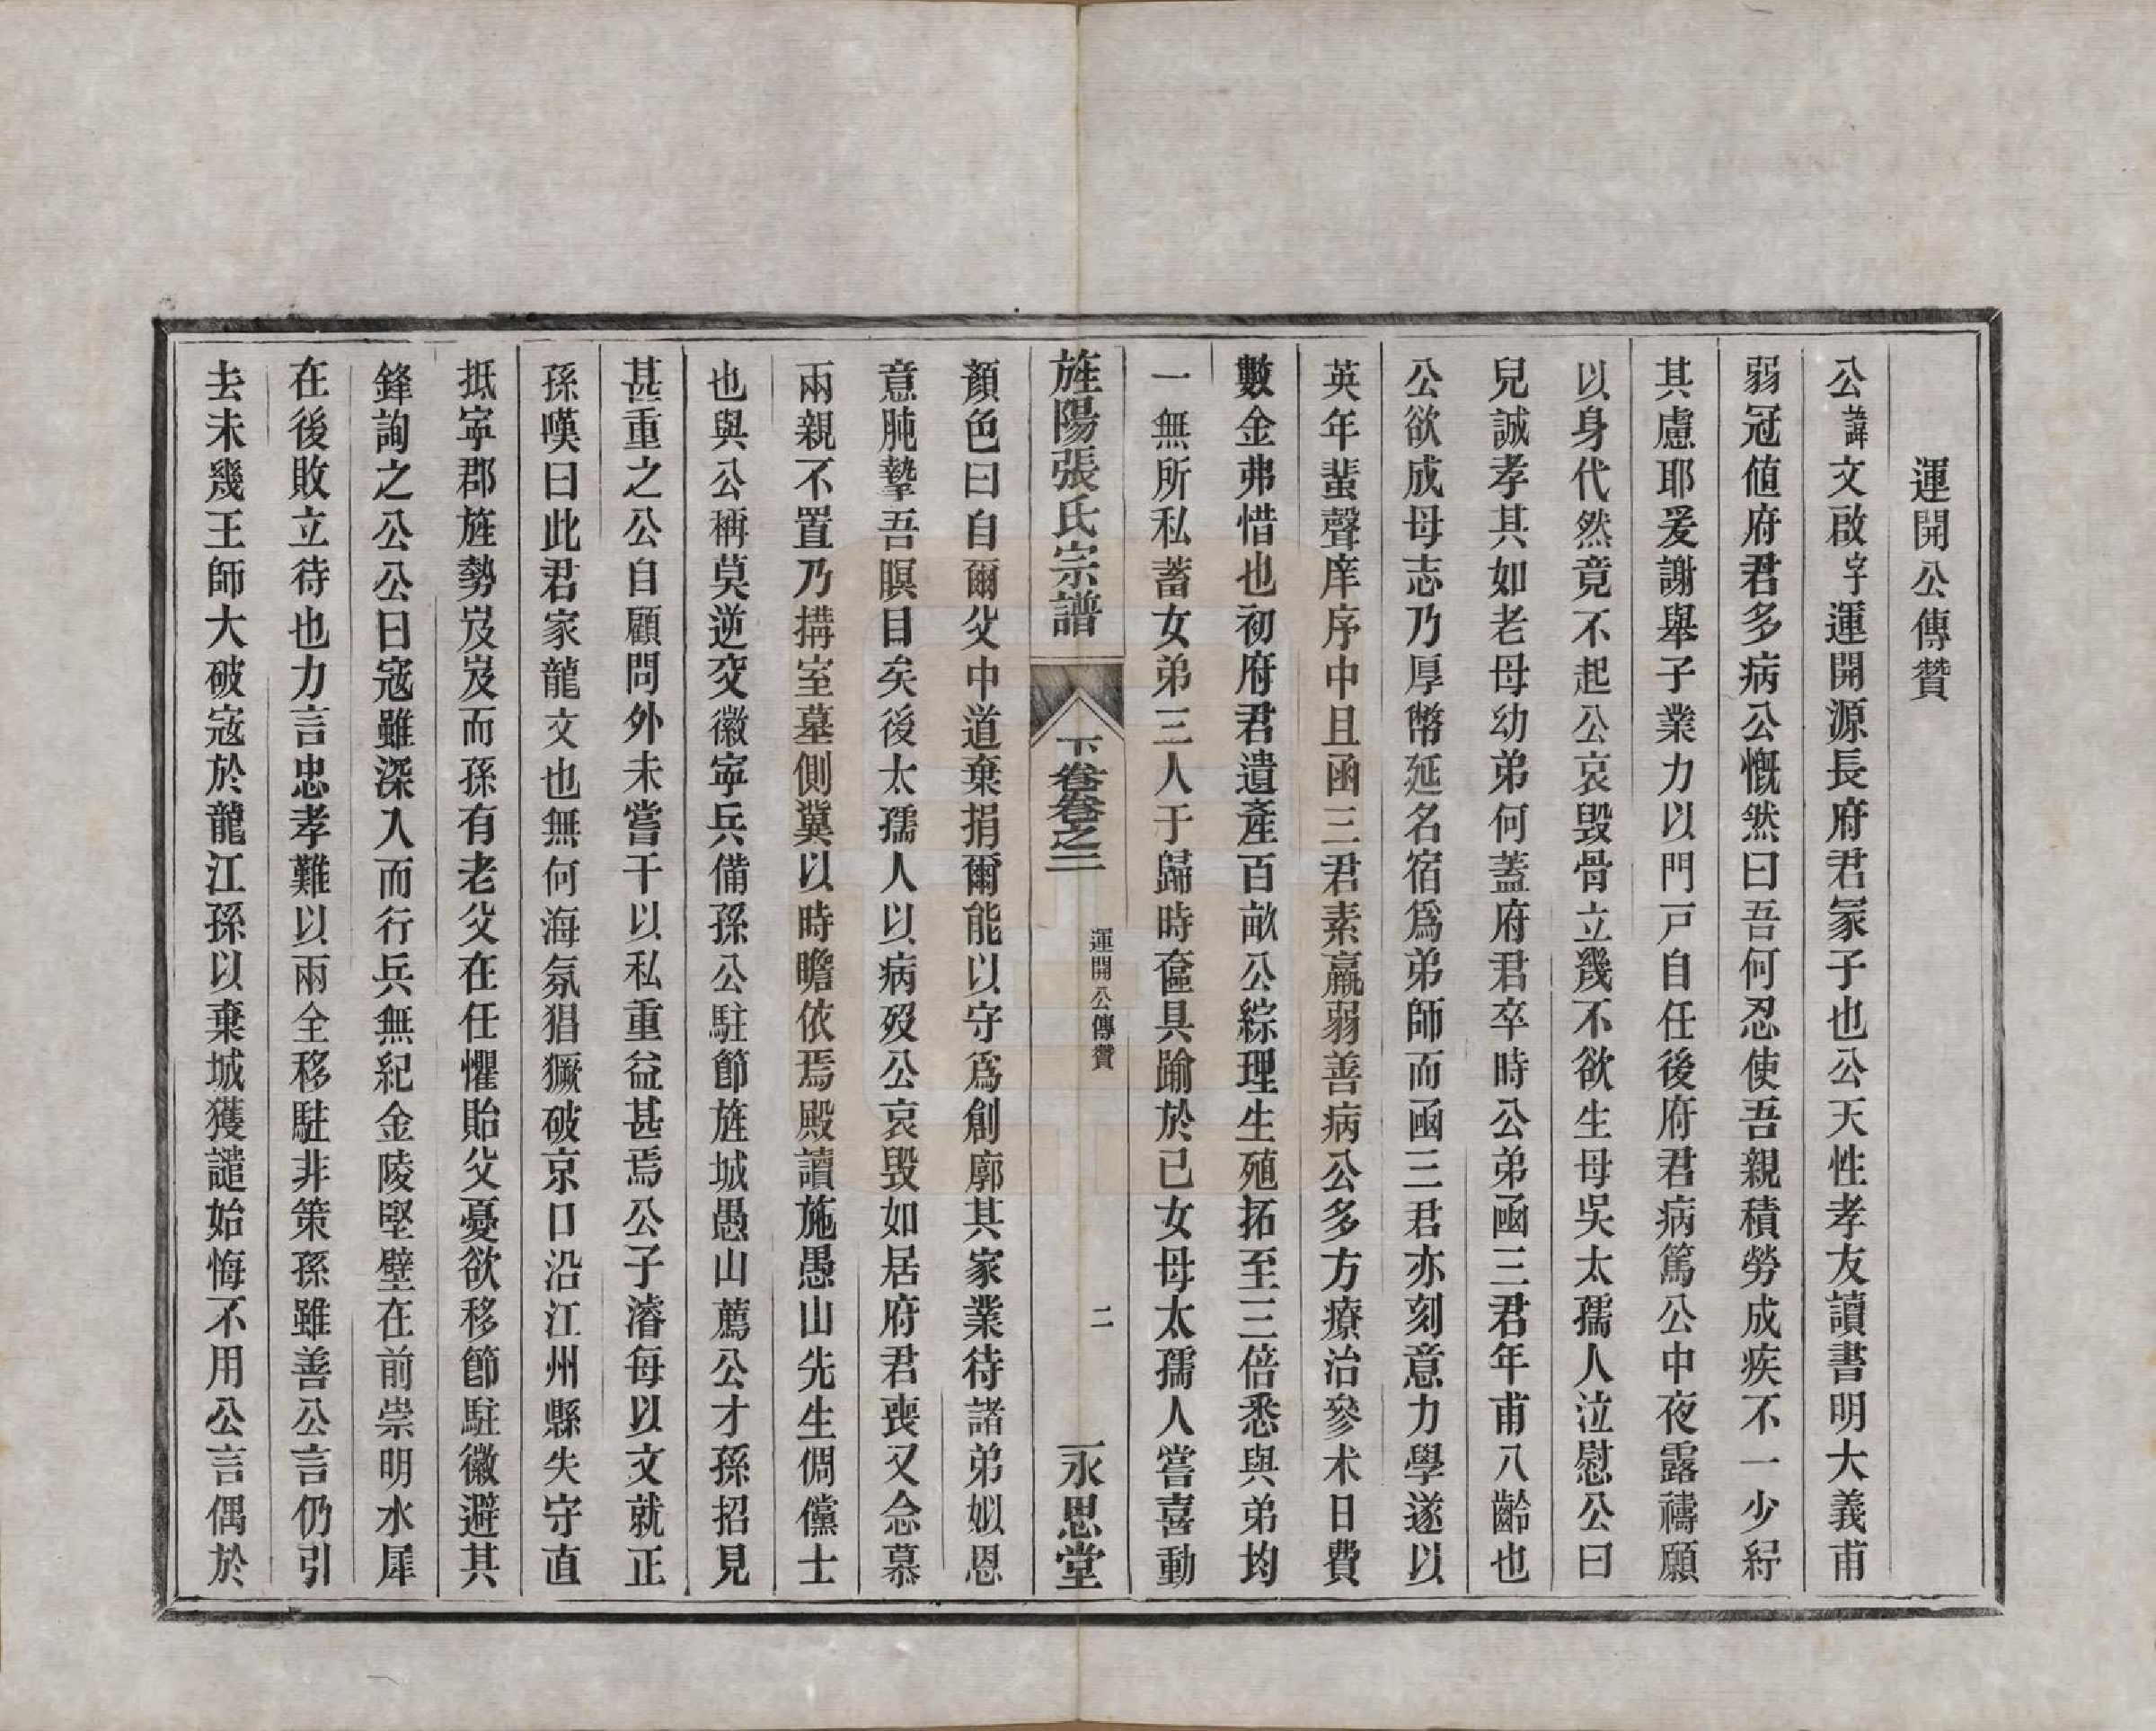 運開公傳贊
公諱文啟字運開源長府君冢子也公天性孝友讀書明大義甫
弱冠值府君多病公慨然曰吾何忍使吾親積勞成疾不一少紓
其慮耶爰謝舉子業力以門戸自任後府君病篤公中夜露禱願
以身代然竟不起公哀毀骨立幾不欲生母吳太孺人泣慰公曰
兒誠孝其如老母幼弟何蓋府君卒時公弟函三君年甫八齡也
公欲成母志乃厚幣延名宿爲弟師而函三君亦刻意力學遂以
英年蜚聲庠序中且函三君素羸弱善病公多方療治參朮日費
數金弗惜也初府君遺產百畝公綜理生殖拓至三倍悉與弟均
一無所私蓄女弟三人于歸時奩具踰於已女母太孺人嘗喜動
旌陽張氏宗譜
下卷卷之二
運開公傳贊
二
永思堂
顏色曰自爾父中道棄捐爾能以守爲創廓其家業待諸弟姒恩
意肫摯吾瞑目矣後太孺人以病歿公哀毀如居府君喪又念慕
兩親不置乃搆室墓側冀以時瞻依焉殿讀施愚山先生倜儻士
也與公稱莫逆交徽寧兵備孫公駐節旌城愚山薦公才孫招見
甚重之公自顧問外未嘗干以私重益甚焉公子濬每以文就正
孫嘆曰此君家龍文也無何海氛猖獗破京口沿江州縣失守直
抵寧郡旌勢岌岌而孫有老父在任懼貽父憂欲移節駐徽避其
鋒詢之公公曰寇雖深入而行兵無紀金陵堅壁在前崇明水犀
在後敗立待也力言忠孝難以兩全移駐非策孫雖善公言仍引
去未幾王師大破寇於龍江孫以棄城獲譴始悔不用公言偶於